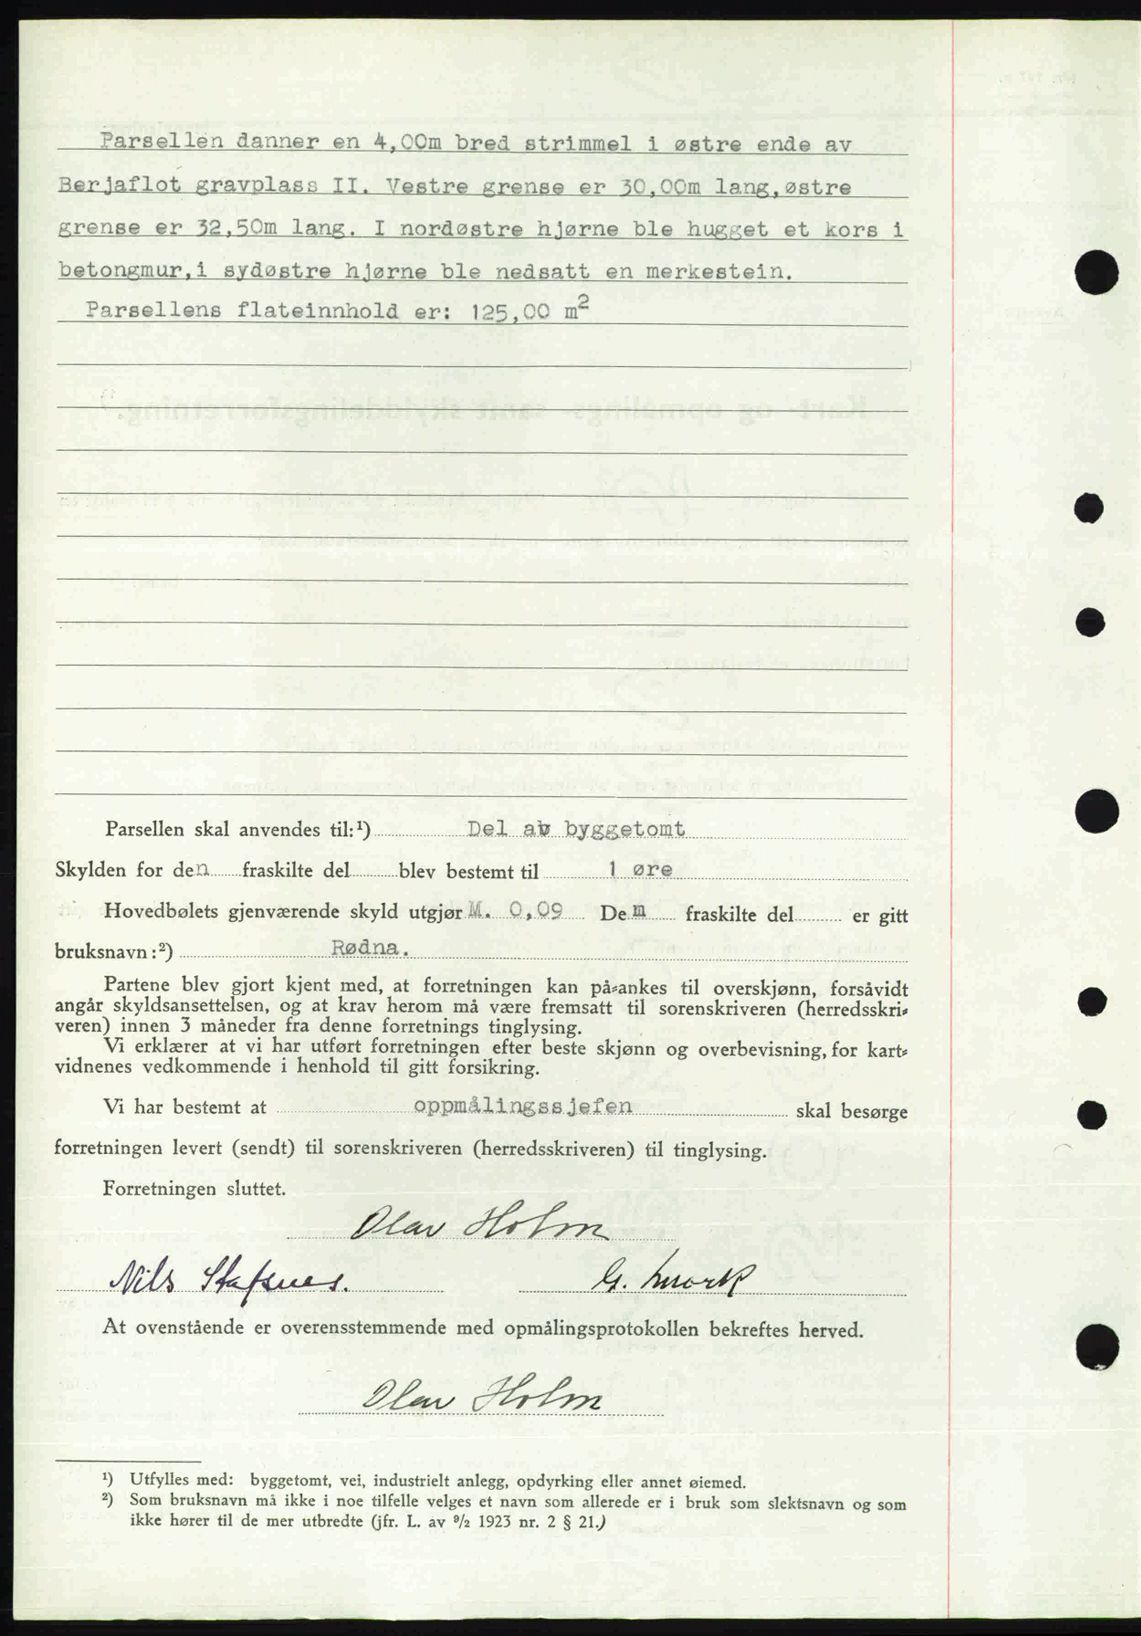 Parsellen danner en 4,00m bred strimmel i østre ende av
Berjaflot gravplass II. Vestre grense er 30,00m lang,østre
grense er 32,50m lang. I nordøstre hjørne ble hugget et kors i
betongmur,i sydøstre hjørne ble nedsatt en merkestein.
Parsellens flateinnhold er: 125,00 m²
Parsellen skal anvendes til:¹) Del av byggetomt
Skylden for den fraskilte del blev bestemt til 1 øre
Hovedbølets gjenværende skyld utgjør M. 0,09 Den fraskilte del er gitt
bruksnavn:²) Rødna.
Partene blev gjort kjent med, at forretningen kan på-ankes til overskjønn, forsåvidt
angår skyldsansettelsen, og at krav herom må være fremsatt til sorenskriveren (herredsskri-
veren) innen 3 måneder fra denne forretnings tinglysing.
Vi erklærer at vi har utført forretningen efter beste skjønn og overbevisning, for kart-
vidnenes vedkommende i henhold til gitt forsikring.
Vi har bestemt at oppmålingssjefen skal besørge
forretningen levert (sendt) til sorenskriveren (herredsskriveren) til tinglysing.
Forretningen sluttet.
Olav Holm
Nils Stafsnes. G.
At ovenstående er overensstemmende med opmålingsprotokollen bekreftes herved.
Olav Holm
¹) Utfylles med: byggetomt, vei, industrielt anlegg, opdyrking eller annet øiemed.
²) Som bruksnavn må ikke i noe tilfelle velges et navn som allerede er i bruk som slektsnavn og som
ikke hører til de mer utbredte (jfr. L. av 9/2 1923 nr. 2 § 21.)